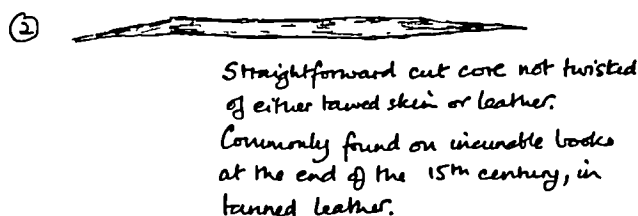 ②
Straightforward cut core not twisted
of either tawed skin or leather.
Commonly found on incunable books
at the end of the 15th century, in
tanned leather.